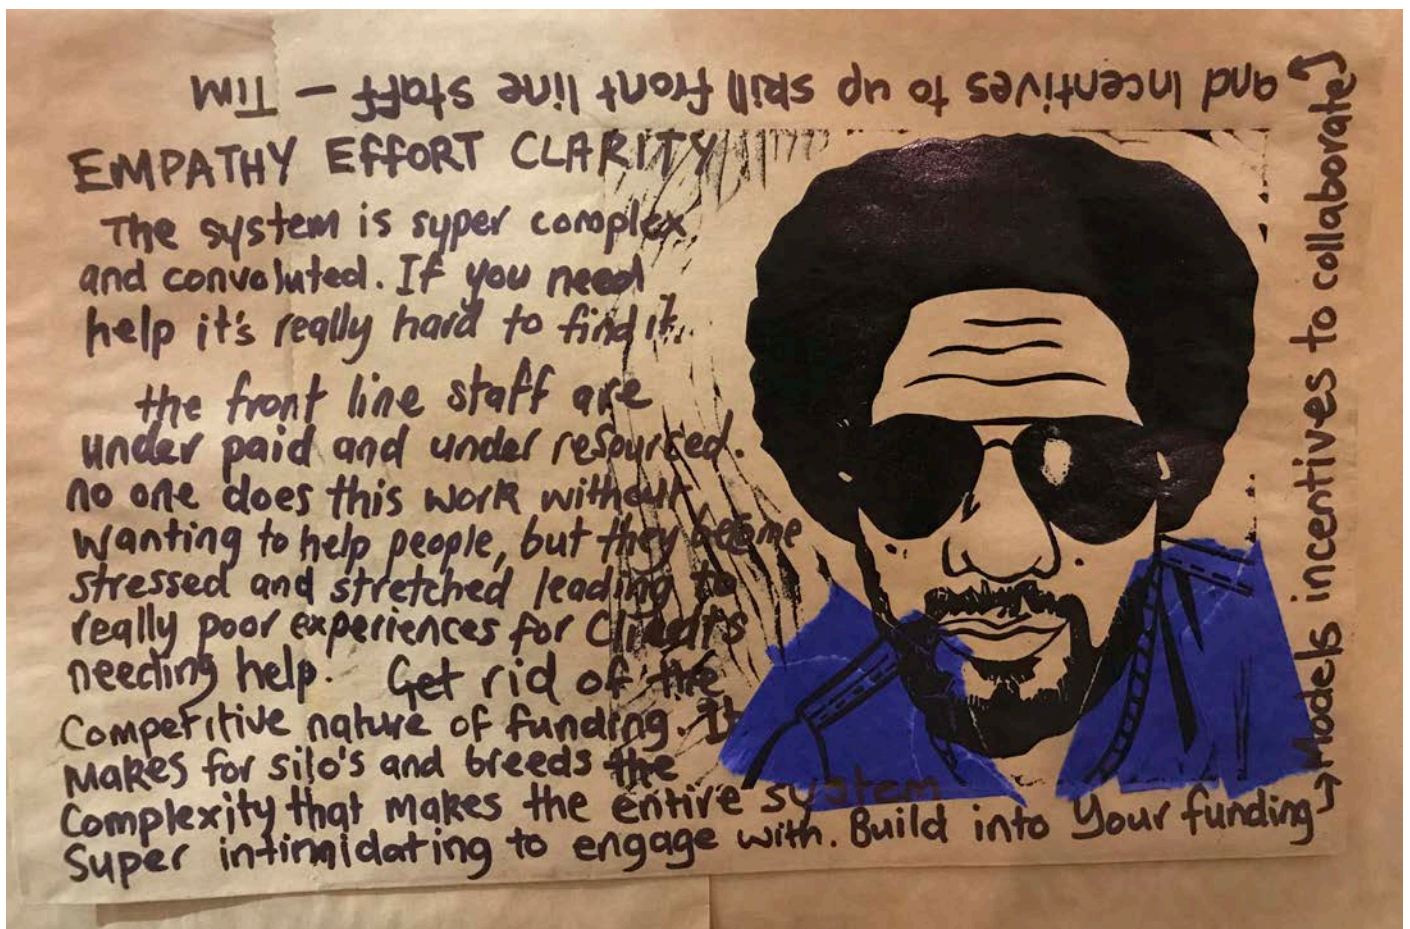 EMPATHY EFFORT CLARITY
The system is super complex
and convoluted. If you need
help it's really hard to find it.
the front line staff are
under paid and under resourced.
no one does this work without
wanting to help people, but they become
stressed and stretched leading to
really poor experiences for clients
needing help. Get rid of the
Competitive nature of funding. It
makes for silo's and breeds the
Complexity that makes the entire system
Super intimidating to engage with. Build into Your funding
Models incentives to collaborate
and Incentives to up skill front line staff - TIM